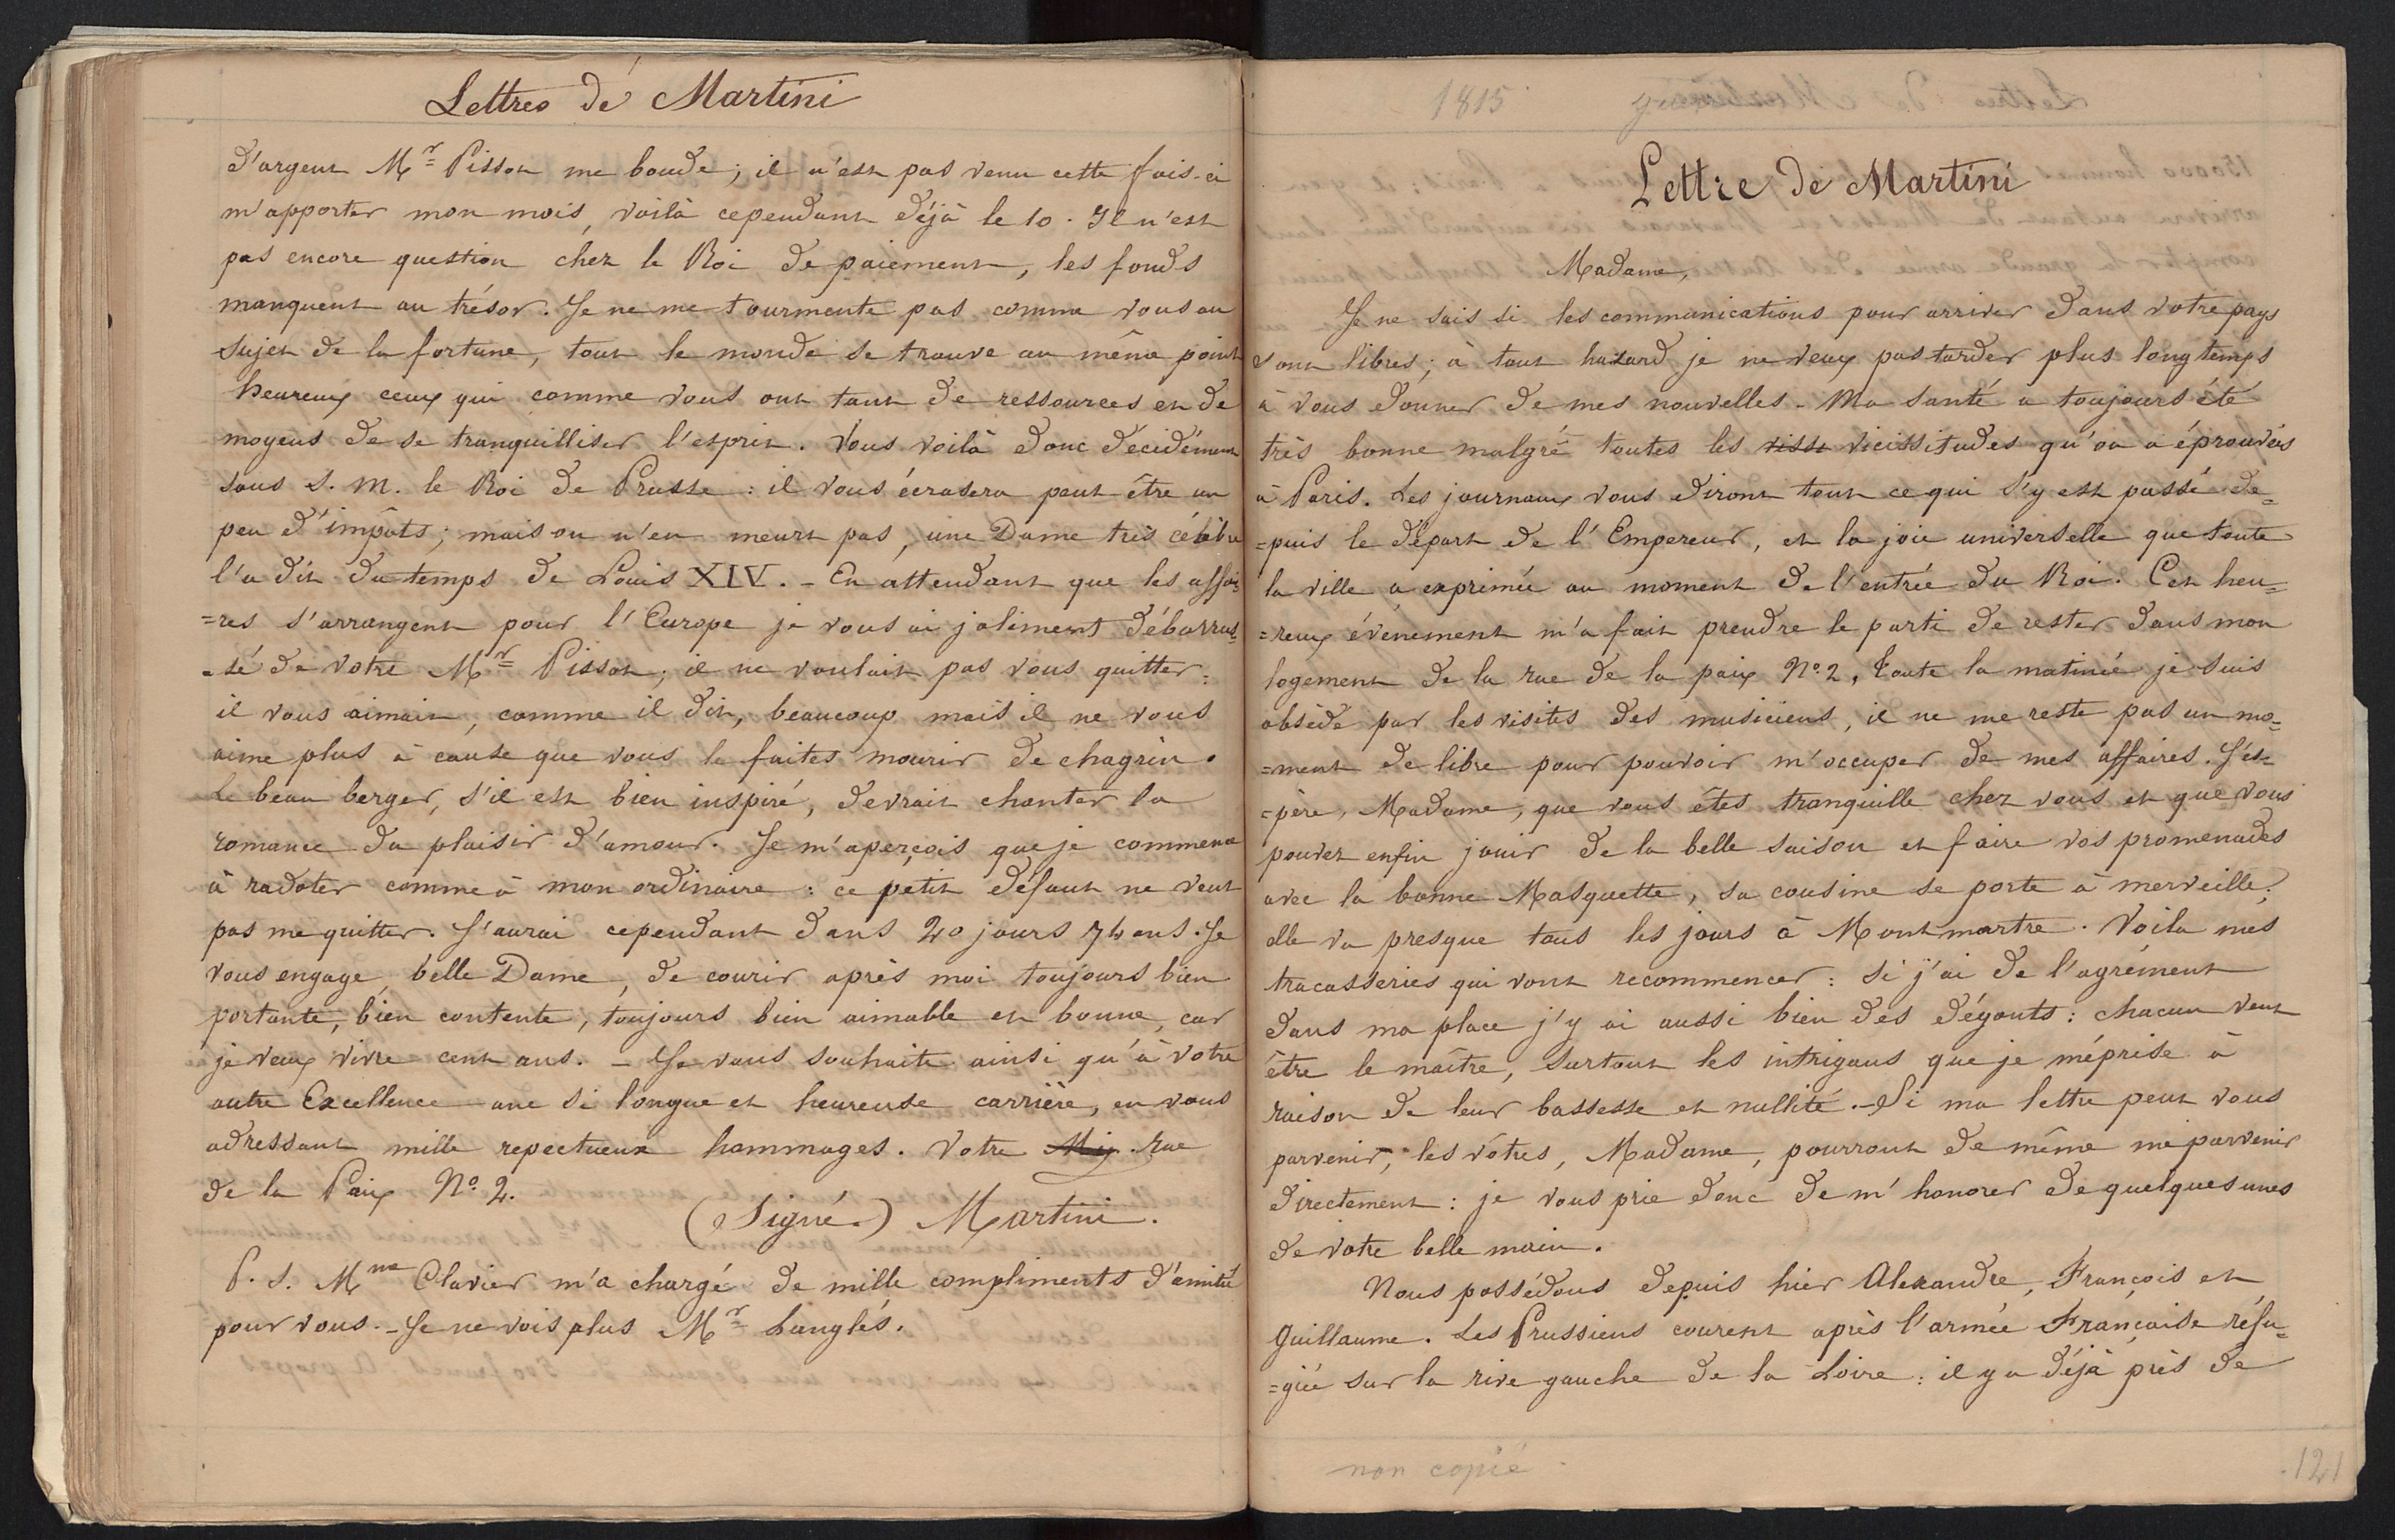 Lettres de Martini
d'argent Mr Pisson me boude; il n'est pas venu cette fois-ci
m'apporter mon mois, voilà cependant déjà le 10. Il n'est
pas encore question chez le Roi de paiement, les fonds
manquent au trésor. Je ne me tourmente pas comme vous au
sujet de la fortune, tout le monde se trouve au même point
heureux ceux qui comme vous ont tant de ressources et de
moyens de se tranquilliser l'esprit. Vous voilà donc décidément
sous S. M. le Roi de Prusse : il vous écrasera peut-être un
peu d'impôts; mais on n'en meurt pas, une Dame très célèbre
l'a dit du temps de Louis XIV. - En attendant que les affai-
=res s'arrangent pour l'Europe je vous ai joliment débarras-
-sé de votre Mr Pisson; il ne voulait pas vous quitter :
il vous aimait, comme il dit, beaucoup mais il ne vous
aime plus à cause que vous le faites mourir de chagrin.
Le beau berger, s'il est bien inspiré, devrait chanter la
romance du plaisir d'amour. Je m'aperçois que je commence
à radoter comme à mon ordinaire : ce petit défaut ne veut
pas me quitter. J'aurai cependant dans 20 jours 74 ans. Je
vous engage, belle Dame, de courir après moi toujours bien
portante, bien contente, toujours bien aimable et bonne, car
je veux vivre cent ans. - Je vous souhaite ainsi qu'à votre
autre Excellence une si longue et heureuse carrière, en vous
adressant mille repectueux hommages. Votre My. rue
de la Paix No 2.
(Signé.) Martini.
P. S. Mme Clavier m'a chargé de mille compliments d'amitié
pour vous. - Je ne vois plus Mr Langlés.
1815
Lettre de Martini
Madame,
Je ne sais si les communications pour arriver dans votre pays
sont libres; à tout hazard je ne veux pas tarder plus longtemps
à vous donner de mes nouvelles - Ma santé a toujours été
très bonne malgré toutes les vissi vicissitudes qu'on a éprouvées
à Paris. Les journaux vous diront tout ce qui s'y est passé de=
=puis le départ de l'Empereur, et la joie universelle que toute
la ville a exprimée au moment de l'entrée du Roi. Cet heu=
=reux évènement m'a fait prendre le parti de rester dans mon
logement de la rue de la paix No 2, toute la matinée je suis
obsédé par les visites des musiciens, il ne me reste pas un mo=
=ment de libre pour pouvoir m'occuper de mes affaires. J'es=
=père, Madame, que vous êtes tranquille chez vous et que vous
pouvez enfin jouir de la belle saison et faire vos promenades
avec la bonne Masquette, sa cousine se porte à merveille;
elle va presque tous les jours à Montmartre. Voila mes
tracasseries qui vont recommencer : si j'ai de l'agrément
dans ma place j'y ai aussi bien des dégouts : chacun veut
être le maître, surtout les intrigans que je méprise à
raison de leur bassesse et nullité. - Si ma lettre peut vous
parvenir, les vôtres, Madame, pourront de même me parvenir
directement : je vous prie donc de m'honorer de quelques unes
de votre belle main.
Nous possédons depuis hier Alexandre, François et
Guillaume. Les Prussiens courent après l'armée Française réfu=
=giée sur la rive gauche de la Loire : il y a déjà près de
non copié
121